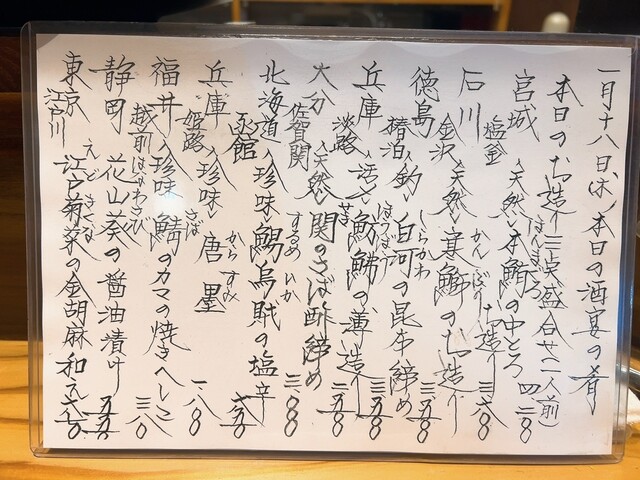 一月十八日(木)本日の酒宴の肴
本日のお造り三点盛合せ(一人前)
宮城 塩釜 〈天然〉本鮪の中とろ ほんまぐろ 四二〇〇
石川 金沢 〈天然〉寒鰤のお造り かんぶり 三六〇〇
徳島 椿泊 〈釣〉白河の昆布締め しらかわ 三五〇〇
兵庫 淡路 〈活〉魴鮄の薄造り ほうぼう 二五〇〇
大分 佐賀関 〈天然〉関のさば酢締め せき 三〇〇〇
北海道 函館 〈珍味〉鯣烏賊の塩辛 するめいか
兵庫 姫路 〈珍味〉唐墨 からすみ 一八〇〇
福井 越前 〈珍味〉鯖のカマの焼きへしこ さば
静岡 花山葵の醤油漬け はなわさび
東京 江戸川 江戸菊菜の金胡麻和え えどきくな